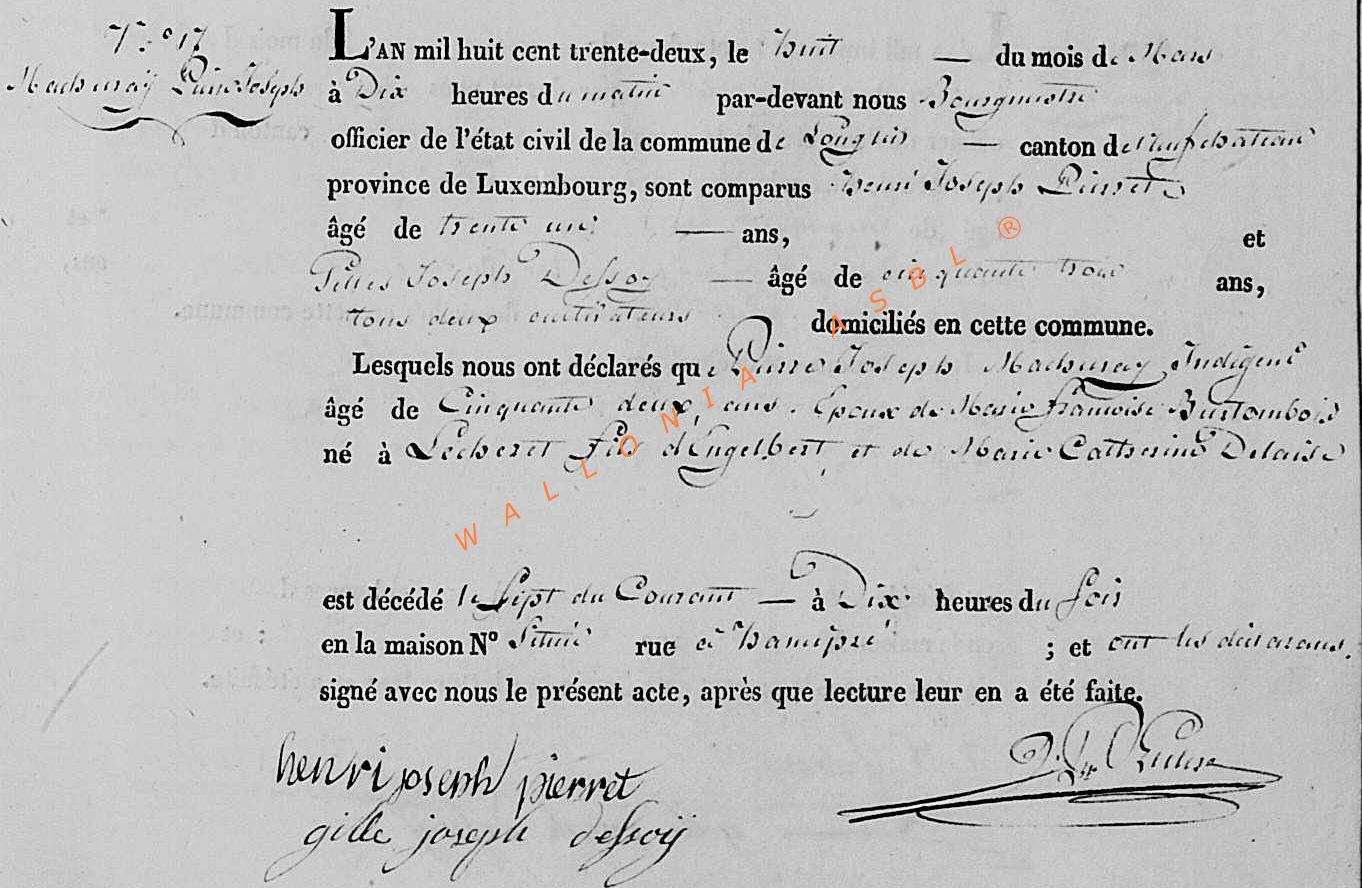 N.° 17
Machuraÿ Pierre Joseph
L'AN mil huit cent trente-deux, le huit — du mois de Mars
à Dix heures du matin par-devant nous Bourgmestre
officier de l'état civil de la commune de Longlier — canton de neufchateau
province de Luxembourg, sont comparus henri Joseph Pierret
âgé de trente un — ans, et
Gilles Joseph Dessoy — âgé de cinquante trois ans,
tous deux cultivateurs domiciliés en cette commune.
Lesquels nous ont déclarés que Pierre Joseph Machuray Indigent
âgé de Cinquante deux ans. Epoux de Marie françoise Burtombois
né à Lescheret fils d'Engelbert et de Marie Catherine Delaise
est décédé le Sept du Courant — à Dix heures du soir
en la maison N° Situé rue à hamipré ; et ont les déclarans
signé avec nous le présent acte, après que lecture leur en a été faite.
henri joseph pierret
gille joseph dessoÿ
WALLONIA ASBL ®